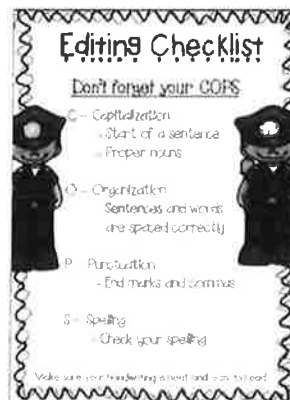 Editing Checklist
Don't forget your COPS
C - Capitalization
- Start of a sentence
- Proper nouns
O - Organization
Sentences and words
are spaced correctly
P - Punctuation
- End marks and commas
S - Spelling
- Check your spelling
Make sure your handwriting is neat and easy to read!